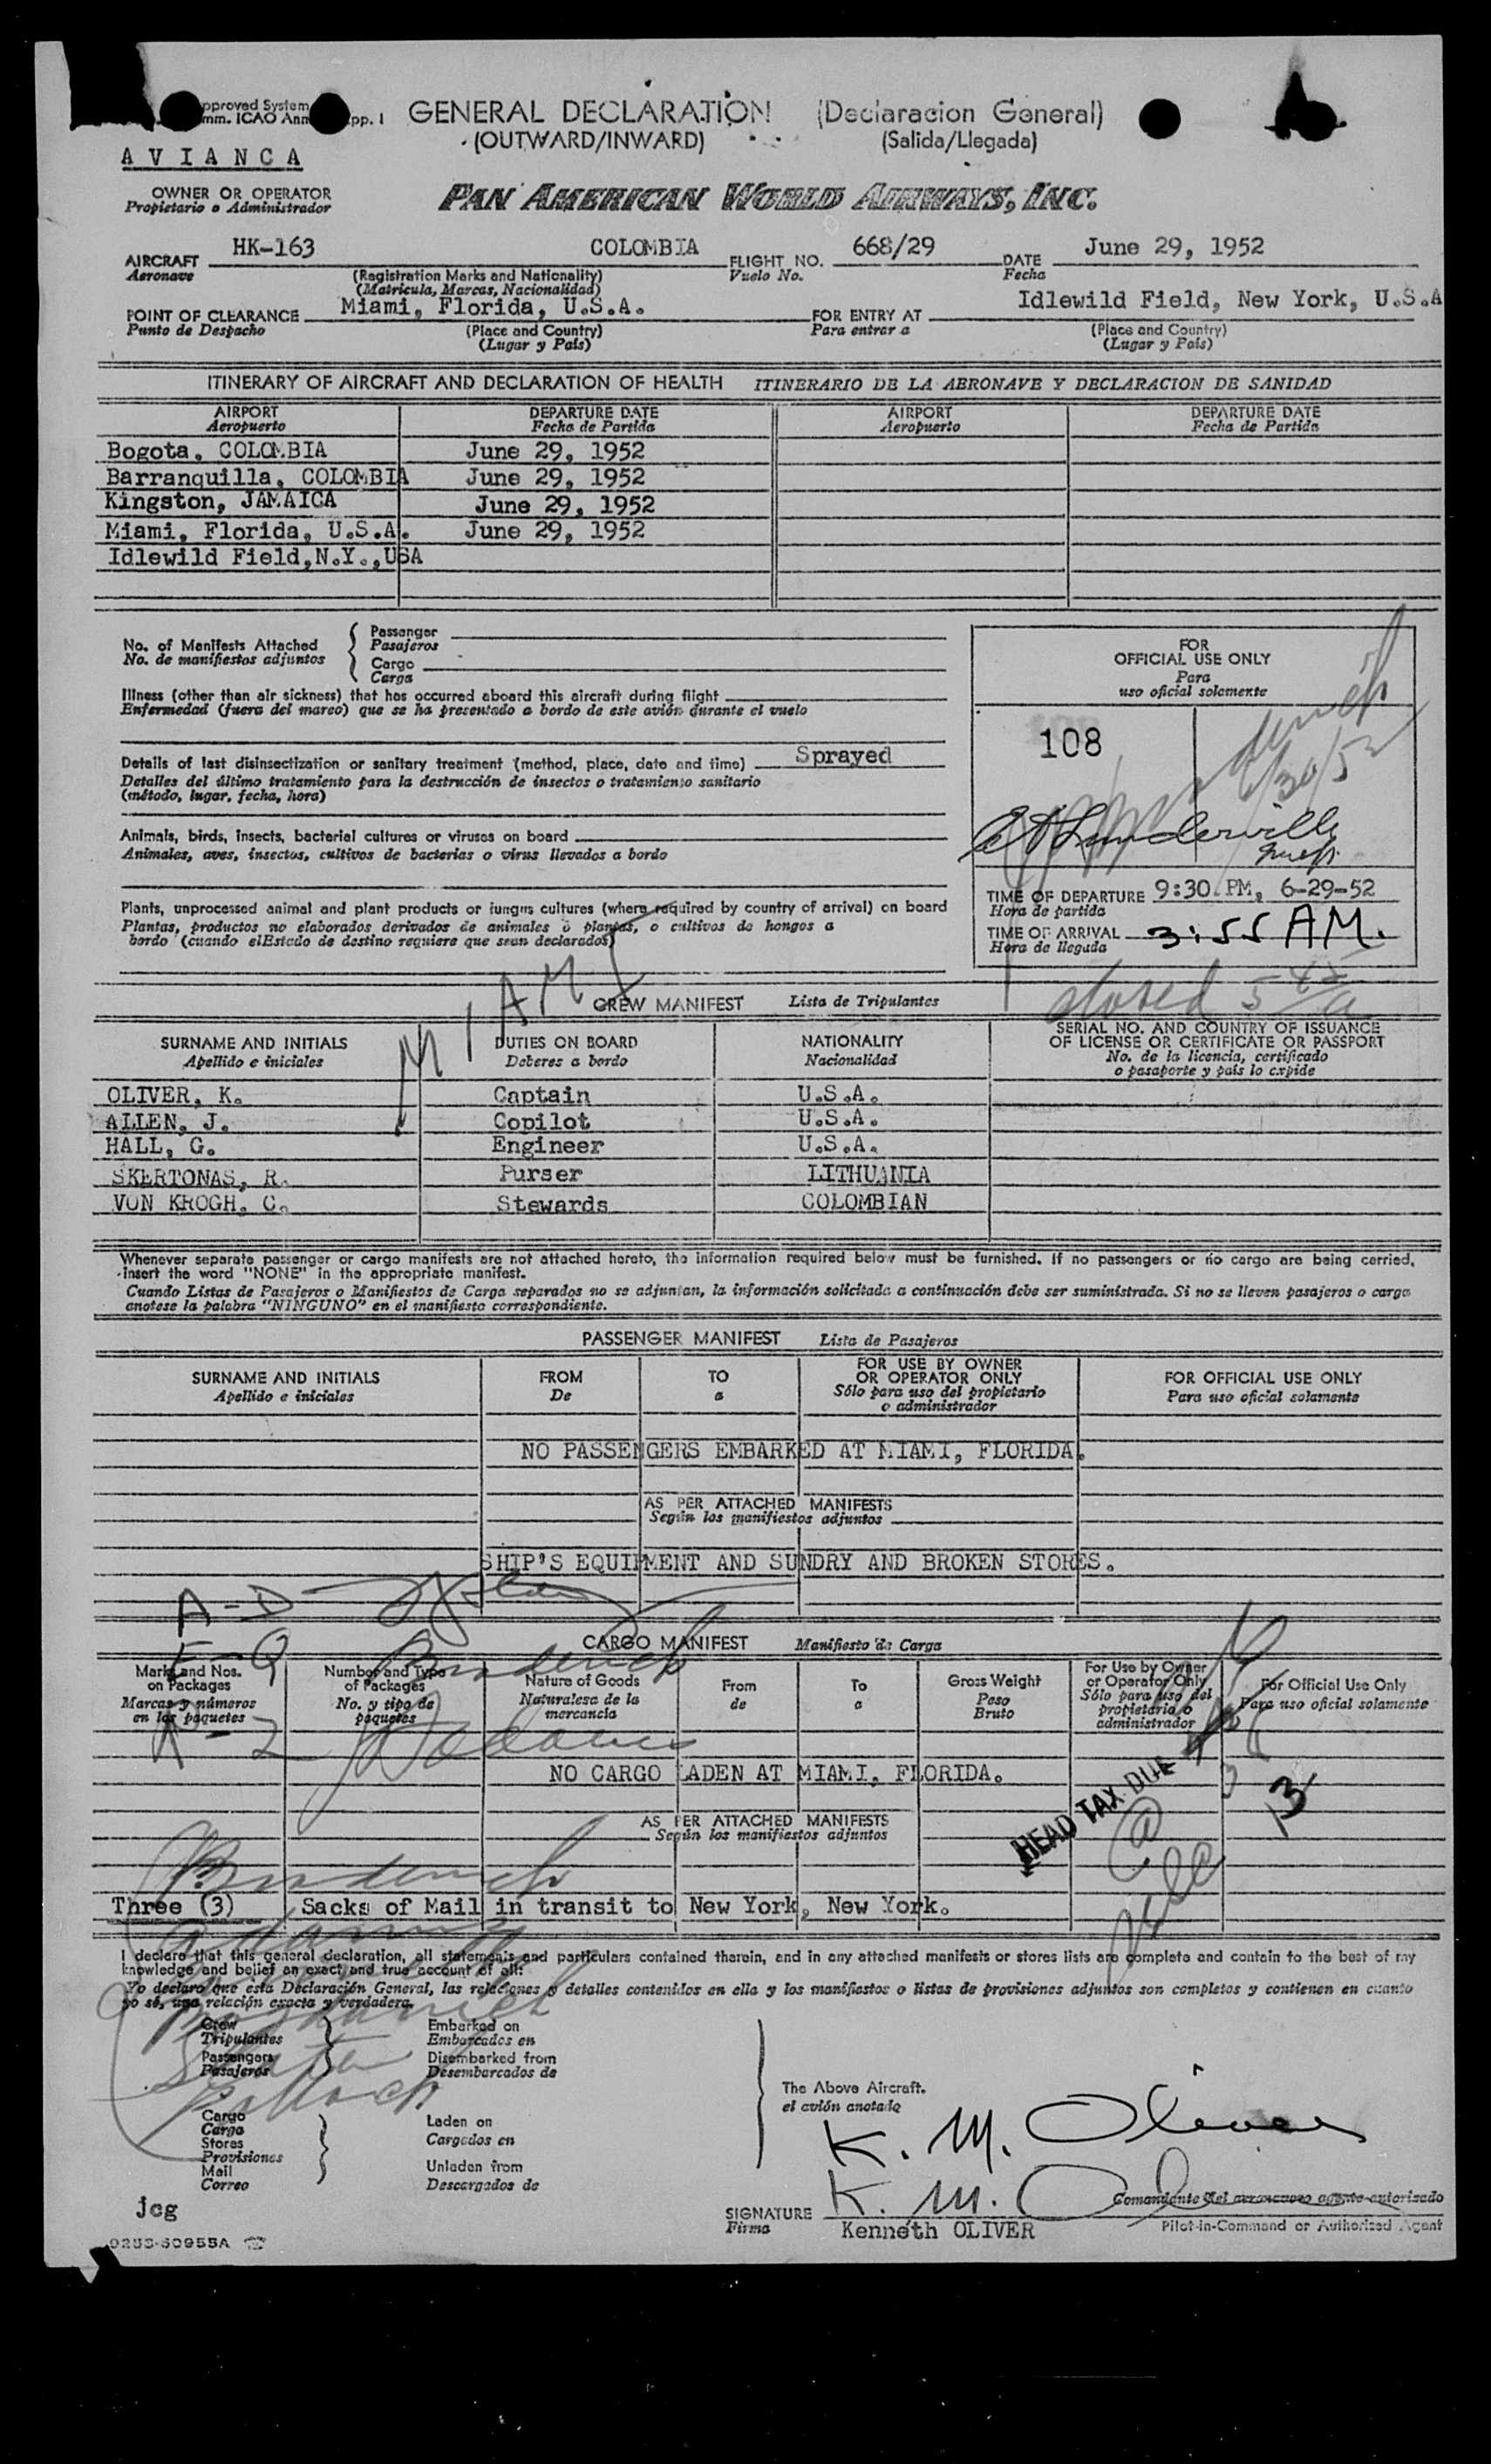 pproved System
mm. ICAO Ann pp. I
GENERAL DECLARATION (Declaracion General)
(OUTWARD/INWARD) (Salida/Llegada)
A V I A N C A
OWNER OR OPERATOR
Propietario o Administrador
PAN AMERICAN WORLD AIRWAYS, INC.
AIRCRAFT HK-163 COLOMBIA FLIGHT NO. 668/29 DATE June 29, 1952
Aeronave (Registration Marks and Nationality) Vuelo No. Fecha
(Matricula, Marcas, Nacionalidad)
POINT OF CLEARANCE Miami, Florida, U.S.A. FOR ENTRY AT Idlewild Field, New York, U.S.A
Punto de Despacho (Place and Country) Para entrar a (Place and Country)
(Lugar y País) (Lugar y País)
ITINERARY OF AIRCRAFT AND DECLARATION OF HEALTH ITINERARIO DE LA AERONAVE Y DECLARACION DE SANIDAD
AIRPORT DEPARTURE DATE AIRPORT DEPARTURE DATE
Aeropuerto Fecha de Partida Aeropuerto Fecha de Partida
Bogota, COLOMBIA June 29, 1952
Barranquilla, COLOMBIA June 29, 1952
Kingston, JAMAICA June 29, 1952
Miami, Florida, U.S.A. June 29, 1952
Idlewild Field,N.Y.,USA
No. of Manifests Attached Passenger
No. de manifiestos adjuntos Pasajeros
Cargo
Carga
Illness (other than air sickness) that has occurred aboard this aircraft during flight
Enfermedad (fuera del mareo) que se ha presentado a bordo de este avión durante el vuelo
Details of last disinsectization or sanitary treatment (method, place, date and time) Sprayed
Detalles del último tratamiento para la destrucción de insectos o tratamiento sanitario
(método, lugar, fecha, hora)
Animals, birds, insects, bacterial cultures or viruses on board
Animales, aves, insectos, cultivos de bacterias o virus llevados a bordo
Plants, unprocessed animal and plant products or fungus cultures (where required by country of arrival) on board
Plantas, productos no elaborados derivados de animales o plantas, o cultivos de hongos a
bordo (cuando elEstado de destino requiere que sean declarados)
FOR
OFFICIAL USE ONLY
Para
uso oficial solamente
108
6/30/52
TIME OF DEPARTURE 9:30 PM, 6-29-52
Hora de partida
TIME OF ARRIVAL 3:55 AM.
Hora de llegada
closed 5 45/a
MIAMI
CREW MANIFEST Lista de Tripulantes
SURNAME AND INITIALS DUTIES ON BOARD NATIONALITY SERIAL NO. AND COUNTRY OF ISSUANCE
Apellido e iniciales Deberes a bordo Nacionalidad OF LICENSE OR CERTIFICATE OR PASSPORT
No. de la licencia, certificado
o pasaporte y país lo expide
OLIVER, K. Captain U.S.A.
ALLEN, J. Copilot U.S.A.
HALL, G. Engineer U.S.A.
SKERTONAS, R. Purser LITHUANIA
VON KROGH, C. Stewards COLOMBIAN
Whenever separate passenger or cargo manifests are not attached hereto, the information required below must be furnished. If no passengers or no cargo are being carried,
insert the word "NONE" in the appropriate manifest.
Cuando Listas de Pasajeros o Manifiestos de Carga separados no se adjuntan, la información solicitada a continuación debe ser suministrada. Si no se lleven pasajeros o carga
anotese la palabra "NINGUNO" en el manifiesto correspondiente.
PASSENGER MANIFEST Lista de Pasajeros
SURNAME AND INITIALS FROM TO FOR USE BY OWNER FOR OFFICIAL USE ONLY
Apellido e iniciales De a OR OPERATOR ONLY Para uso oficial solamente
Sólo para uso del propietario
o administrador
NO PASSENGERS EMBARKED AT MIAMI, FLORIDA.
AS PER ATTACHED MANIFESTS
Según los manifiestos adjuntos
SHIP'S EQUIPMENT AND SUNDRY AND BROKEN STORES.
A-D
E-Q
CARGO MANIFEST Manifiesto de Carga
Marks and Nos. Number and Type Nature of Goods From To Gross Weight For Use by Owner For Official Use Only
on Packages of Packages Naturalesa de la de a Peso or Operator Only Para uso oficial solamente
Marcas y números No. y tipo de mercancia Bruto Sólo para uso del
en los paquetes paquetes propietario o
administrador
R-Z
NO CARGO LADEN AT MIAMI, FLORIDA.
HEAD TAX DUE
13
AS PER ATTACHED MANIFESTS
Según los manifiestos adjuntos
Three (3) Sacks of Mail in transit to New York, New York.
I declare that this general declaration, all statements and particulars contained therein, and in any attached manifests or stores lists are complete and contain to the best of my
knowledge and belief an exact and true account of all:
Yo declaro que esta Declaración General, las relaciones y detalles contenidos en ella y los manifiestos o listas de provisiones adjuntos son completos y contienen en cuanto
yo sé, una relación exacta y verdadera.
Crew Embarked on
Tripulantes Embarcados en
Passengers Disembarked from
Pasajeros Desembarcados de
The Above Aircraft.
el avión anotado
Cargo Laden on
Carga Cargados en
Stores
Provisiones
Mail Unladen from
Correo Descargados de
K. M. Oliver
K. M. Ol
jcg
SIGNATURE
Firma Kenneth OLIVER
Pilot-in-Command or Authorized Agent